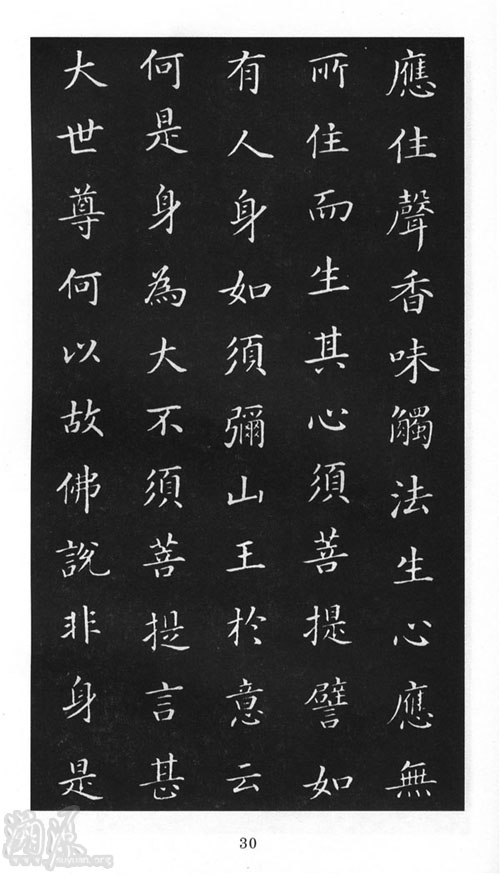 應住聲香味觸法生心應無
所住而生其心須菩提譬如
有人身如須彌山王於意云
何是身為大不須菩提言甚
大世尊何以故佛說非身是
30
www.yuyuan.org